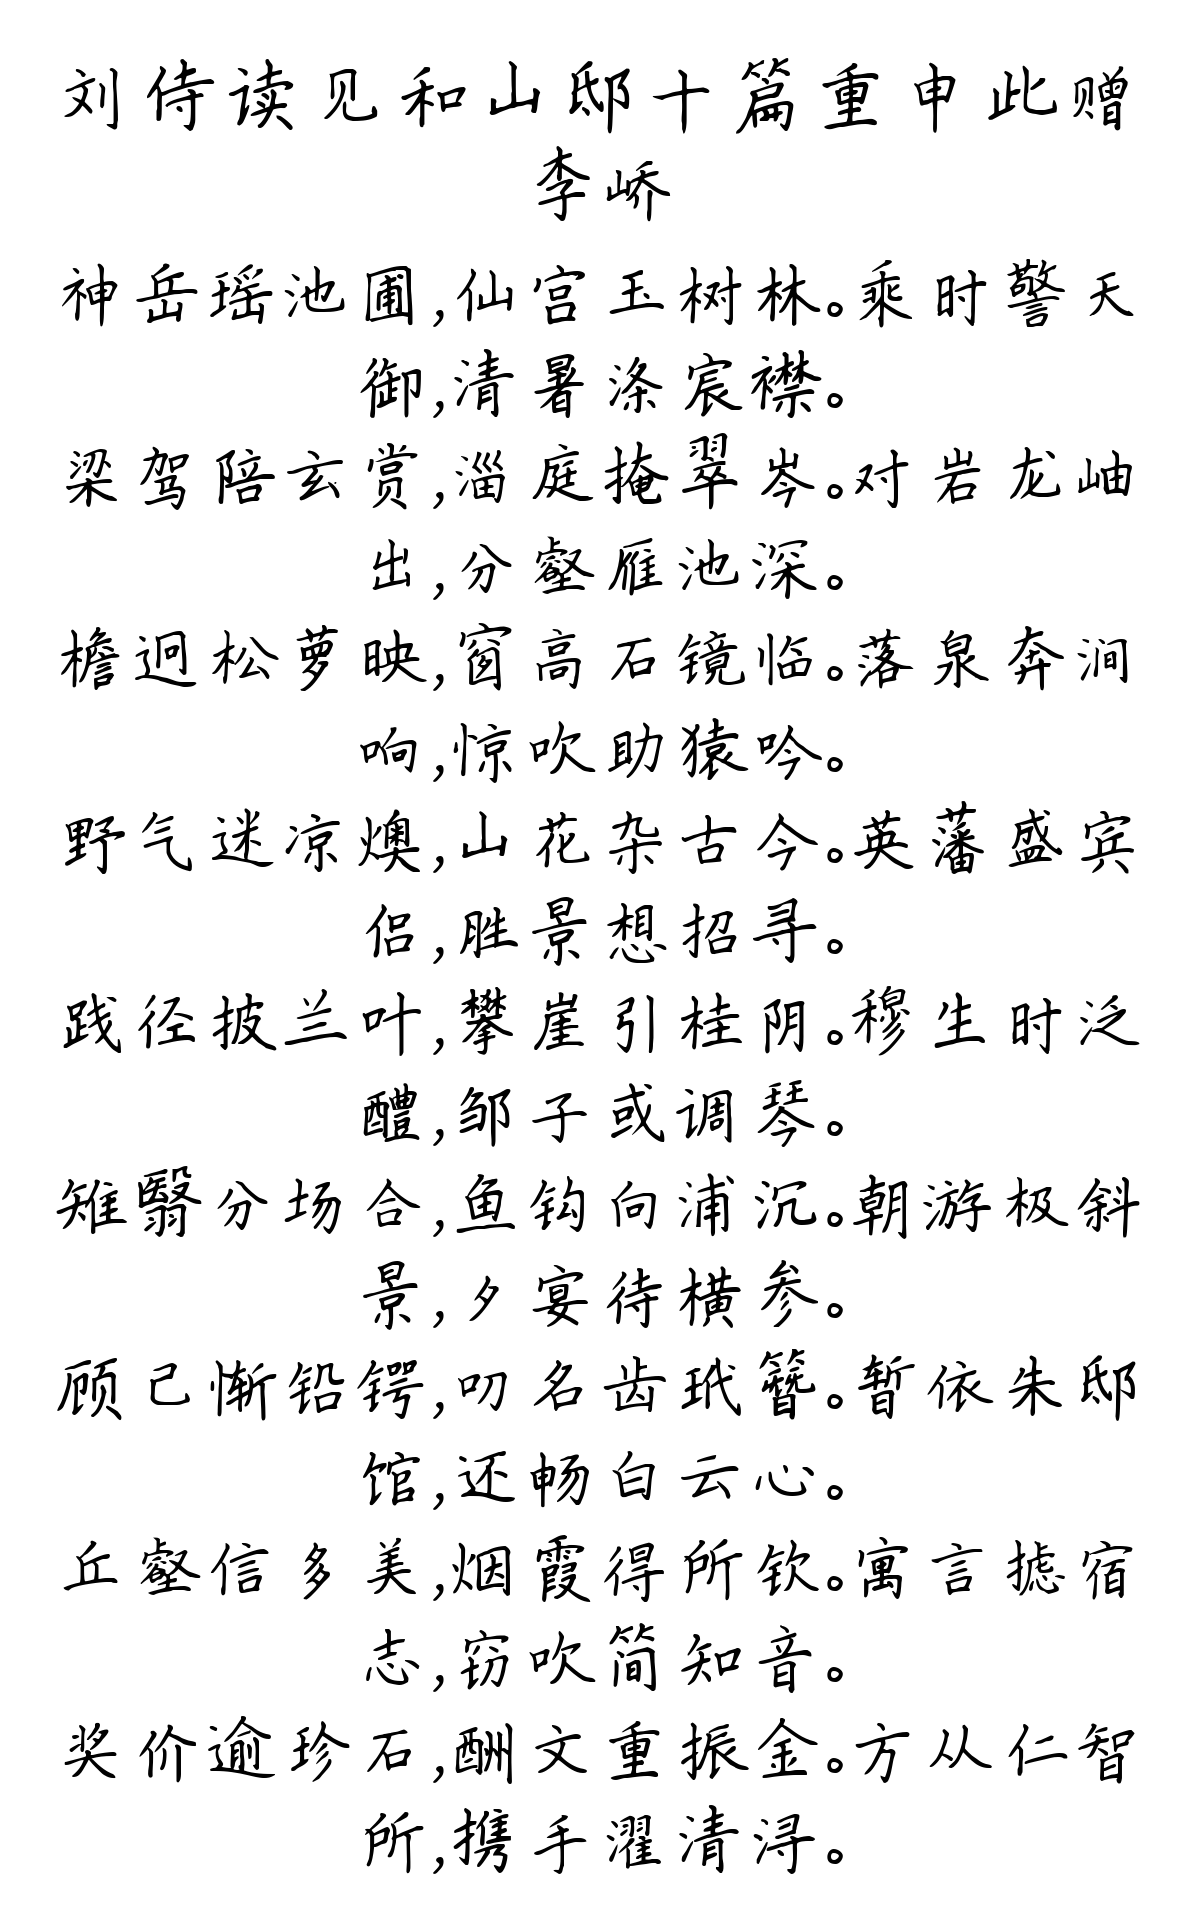 刘侍读见和山邸十篇重申此赠
李峤
神岳瑶池圃,仙宫玉树林。乘时警天
御,清暑涤宸襟。
梁驾陪玄赏,淄庭掩翠岑。对岩龙岫
出,分壑雁池深。
檐迥松萝映,窗高石镜临。落泉奔涧
响,惊吹助猿吟。
野气迷凉燠,山花杂古今。英藩盛宾
侣,胜景想招寻。
践径披兰叶,攀崖引桂阴。穆生时泛
醴,邹子或调琴。
雉翳分场合,鱼钩向浦沉。朝游极斜
景,夕宴待横参。
顾己惭铅锷,叨名齿玳簪。暂依朱邸
馆,还畅白云心。
丘壑信多美,烟霞得所钦。寓言摅宿
志,窃吹简知音。
奖价逾珍石,酬文重振金。方从仁智
所,携手濯清浔。